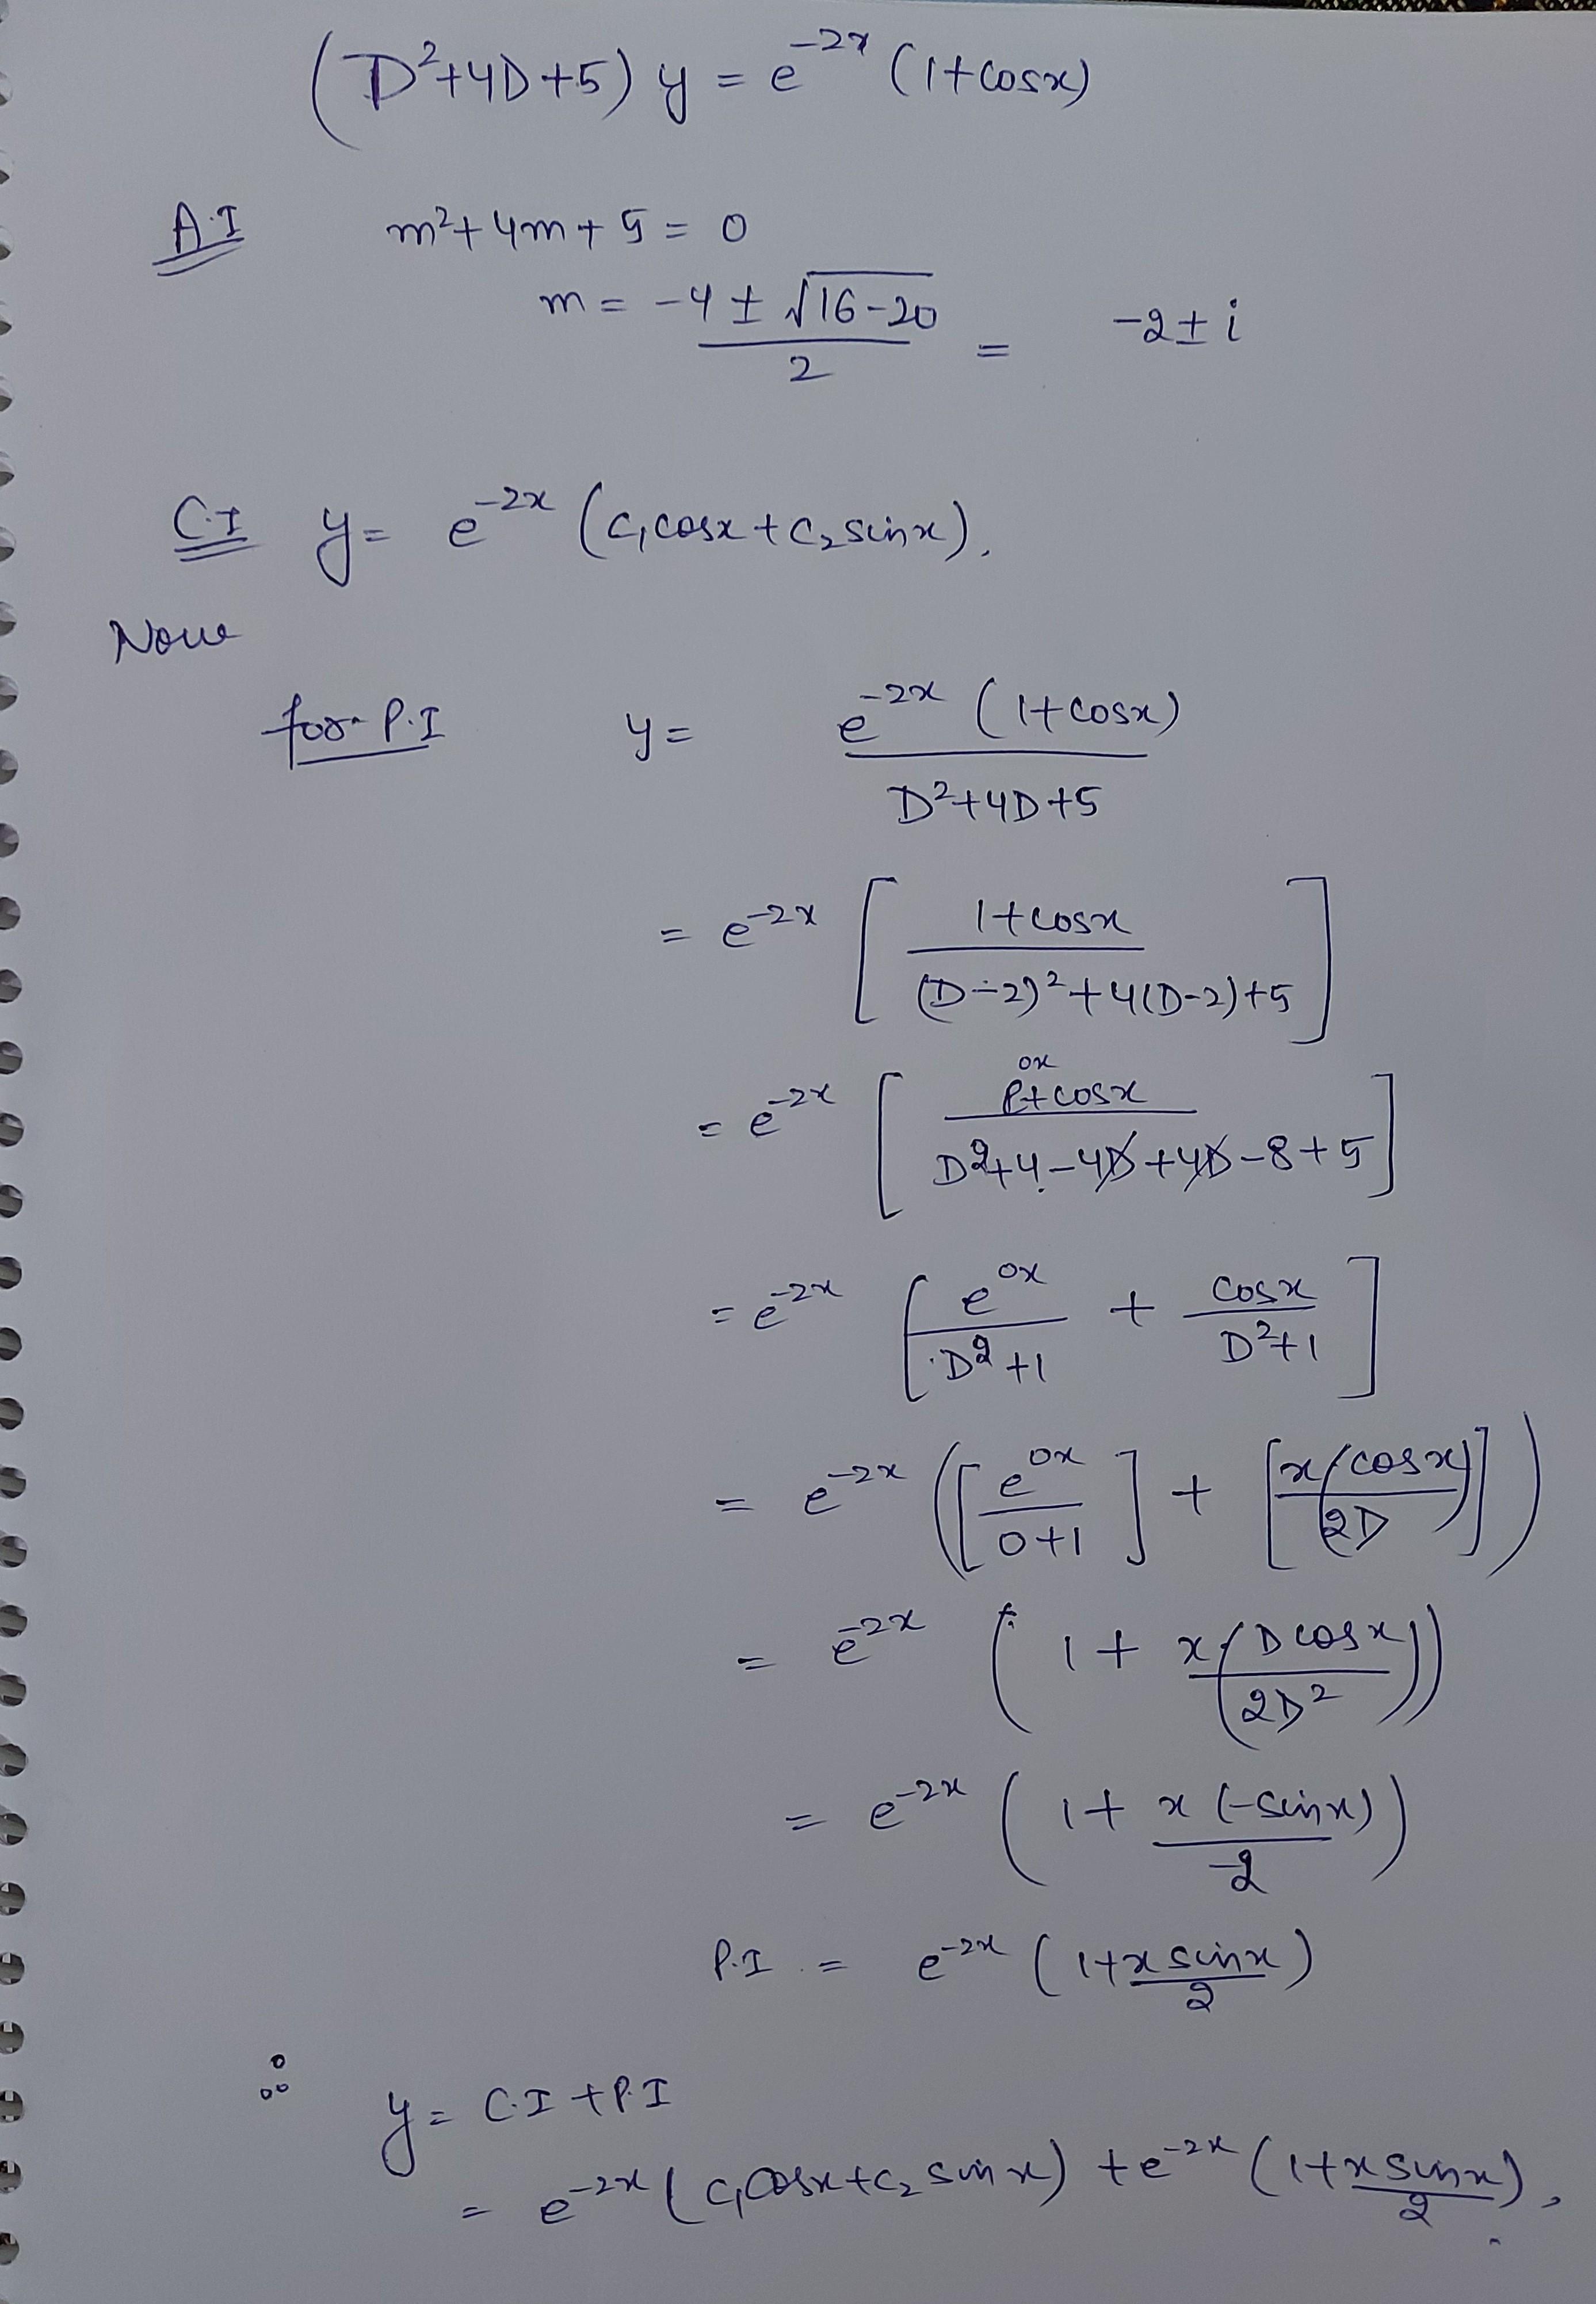 (D²+4D+5) y = e^-2x (1+cosx)
A.I m²+4m+5 = 0
m = (-4 ± √(16-20))/2 = -2 ± i
C.I y = e^-2x (c₁cosx+c₂sinx).
Now
for P.I y = e^-2x (1+cosx) / (D²+4D+5)
= e^-2x [ (1+cosx) / ((D-2)²+4(D-2)+5) ]
= e^-2x [ (e^0x+cosx) / (D²+4-4D+4D-8+5) ]
= e^-2x [ e^0x/(D²+1) + cosx/(D²+1) ]
= e^-2x ([ e^0x/(0+1) ] + [ x(cosx/2D) ])
= e^-2x ( 1 + x(Dcosx/2D²))
= e^-2x ( 1 + x(-sinx)/-2 )
P.I. = e^-2x ( 1+ x sinx/2 )
∴ y = C.I + P.I
= e^-2x (c₁cosx+c₂sinx) + e^-2x (1+ x sinx/2),